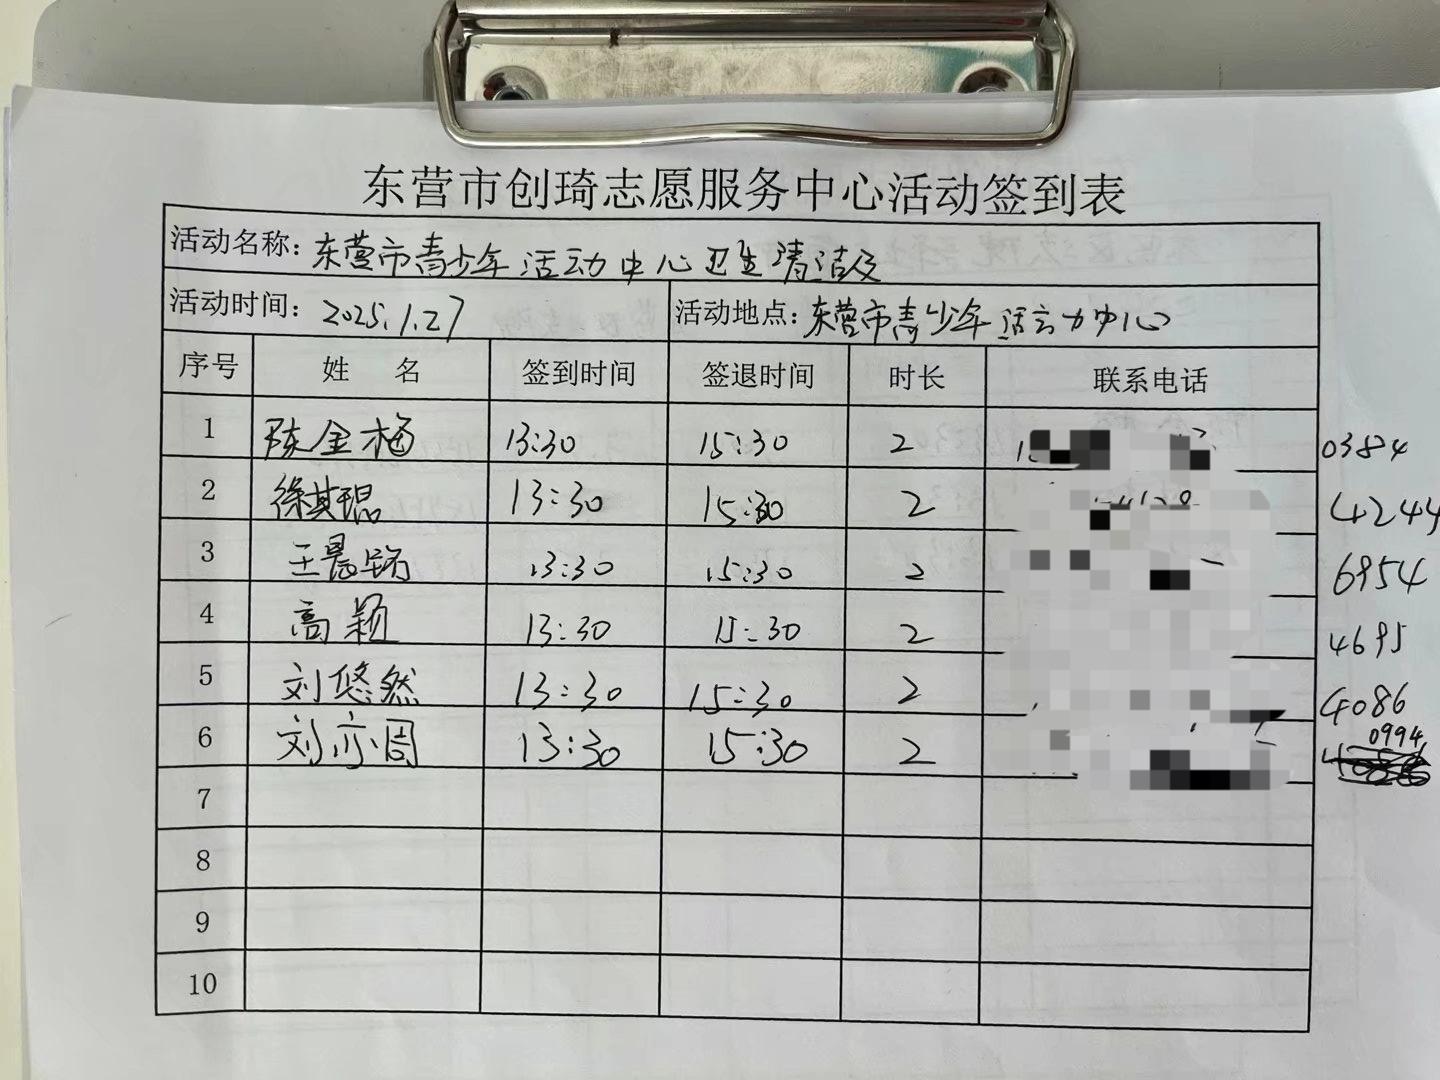 东营市创琦志愿服务中心活动签到表
活动名称：东营市青少年活动中心卫生清洁
活动时间：2025.1.27 活动地点：东营市青少年活动中心
序号 姓名 签到时间 签退时间 时长 联系电话
1 陈金梅 13:30 15:30 2 0384
2 徐其琨 13:30 15:30 2 4244
3 王晨 13:30 15:30 2 6954
4 高颖 13:30 15:30 2 4695
5 刘悠然 13:30 15:30 2 4086
6 刘亦周 13:30 15:30 2 0994
7
8
9
10